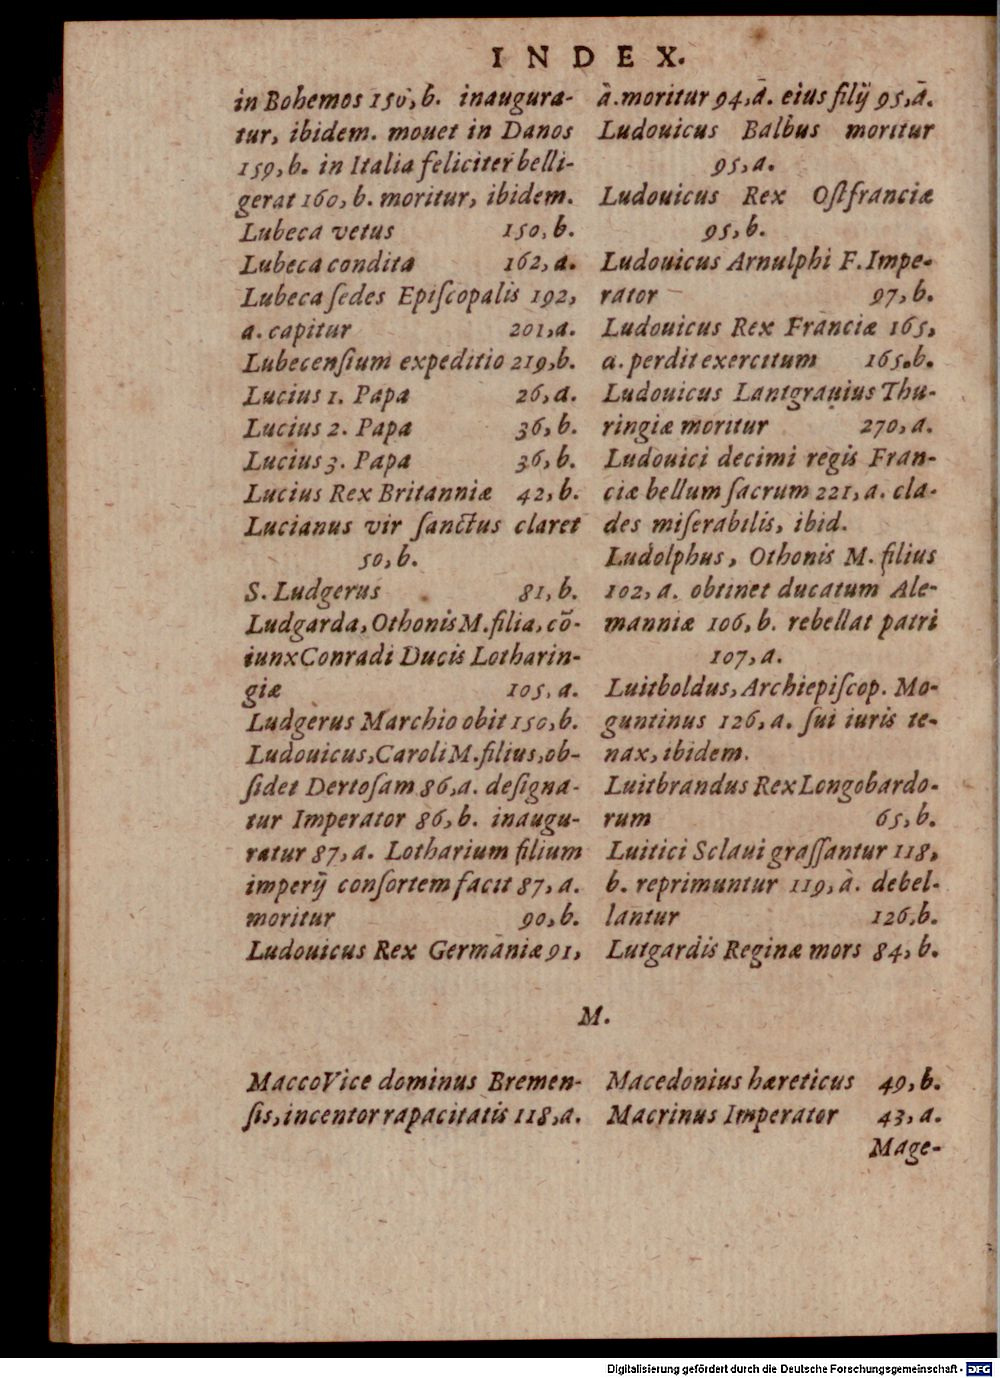 INDEX.
in Bohemos 150, b. inaugura-
tur, ibidem. mouet in Danos
159, b. in Italia feliciter belli-
gerat 160, b. moritur, ibidem.
Lubeca vetus 150, b.
Lubeca condita 162, a.
Lubeca ſedes Epiſcopalis 192,
a. capitur 201, a.
Lubecenſium expeditio 219, b.
Lucius 1. Papa 26, a.
Lucius 2. Papa 36, b.
Lucius 3. Papa 36, b.
Lucius Rex Britanniæ 42, b.
Lucianus vir ſanctus claret
50, b.
S. Ludgerus 81, b.
Ludgarda, Othonis M. filia, cõ-
iunx Conradi Ducis Lotharin-
giæ 105, a.
Ludgerus Marchio obit 150, b.
Ludouicus, Caroli M. filius, ob-
ſidet Dertoſam 86, a. deſigna-
tur Imperator 86, b. inaugu-
ratur 87, a. Lotharium filium
imperij conſortem facit 87, a.
moritur 90, b.
Ludouicus Rex Germaniæ 91,
a. moritur 94, a. eius filij 95, a.
Ludouicus Balbus moritur
95, a.
Ludouicus Rex Oſtfranciæ
95, b.
Ludouicus Arnulphi F. Impe-
rator 97, b.
Ludouicus Rex Franciæ 165,
a. perdit exercitum 165. b.
Ludouicus Lantgrauius Thu-
ringiæ moritur 270, a.
Ludouici decimi regis Fran-
ciæ bellum ſacrum 221, a. cla-
des miſerabilis, ibid.
Ludolphus, Othonis M. filius
102, a. obtinet ducatum Ale-
manniæ 106, b. rebellat patri
107, a.
Luitboldus, Archiepiſcop. Mo-
guntinus 126, a. ſui iuris te-
nax, ibidem.
Luitbrandus Rex Longobardo-
rum 65, b.
Luitici Sclaui graſſantur 118,
b. reprimuntur 119, a. debel-
lantur 126, b.
Lutgardis Reginæ mors 84, b.
M.
Macco Vice dominus Bremen-
ſis, incentor rapacitatis 118, a.
Macedonius hæreticus 49, b.
Macrinus Imperator 43, a.
Mage-
Digitalisierung gefördert durch die Deutsche Forschungsgemeinschaft - DFG